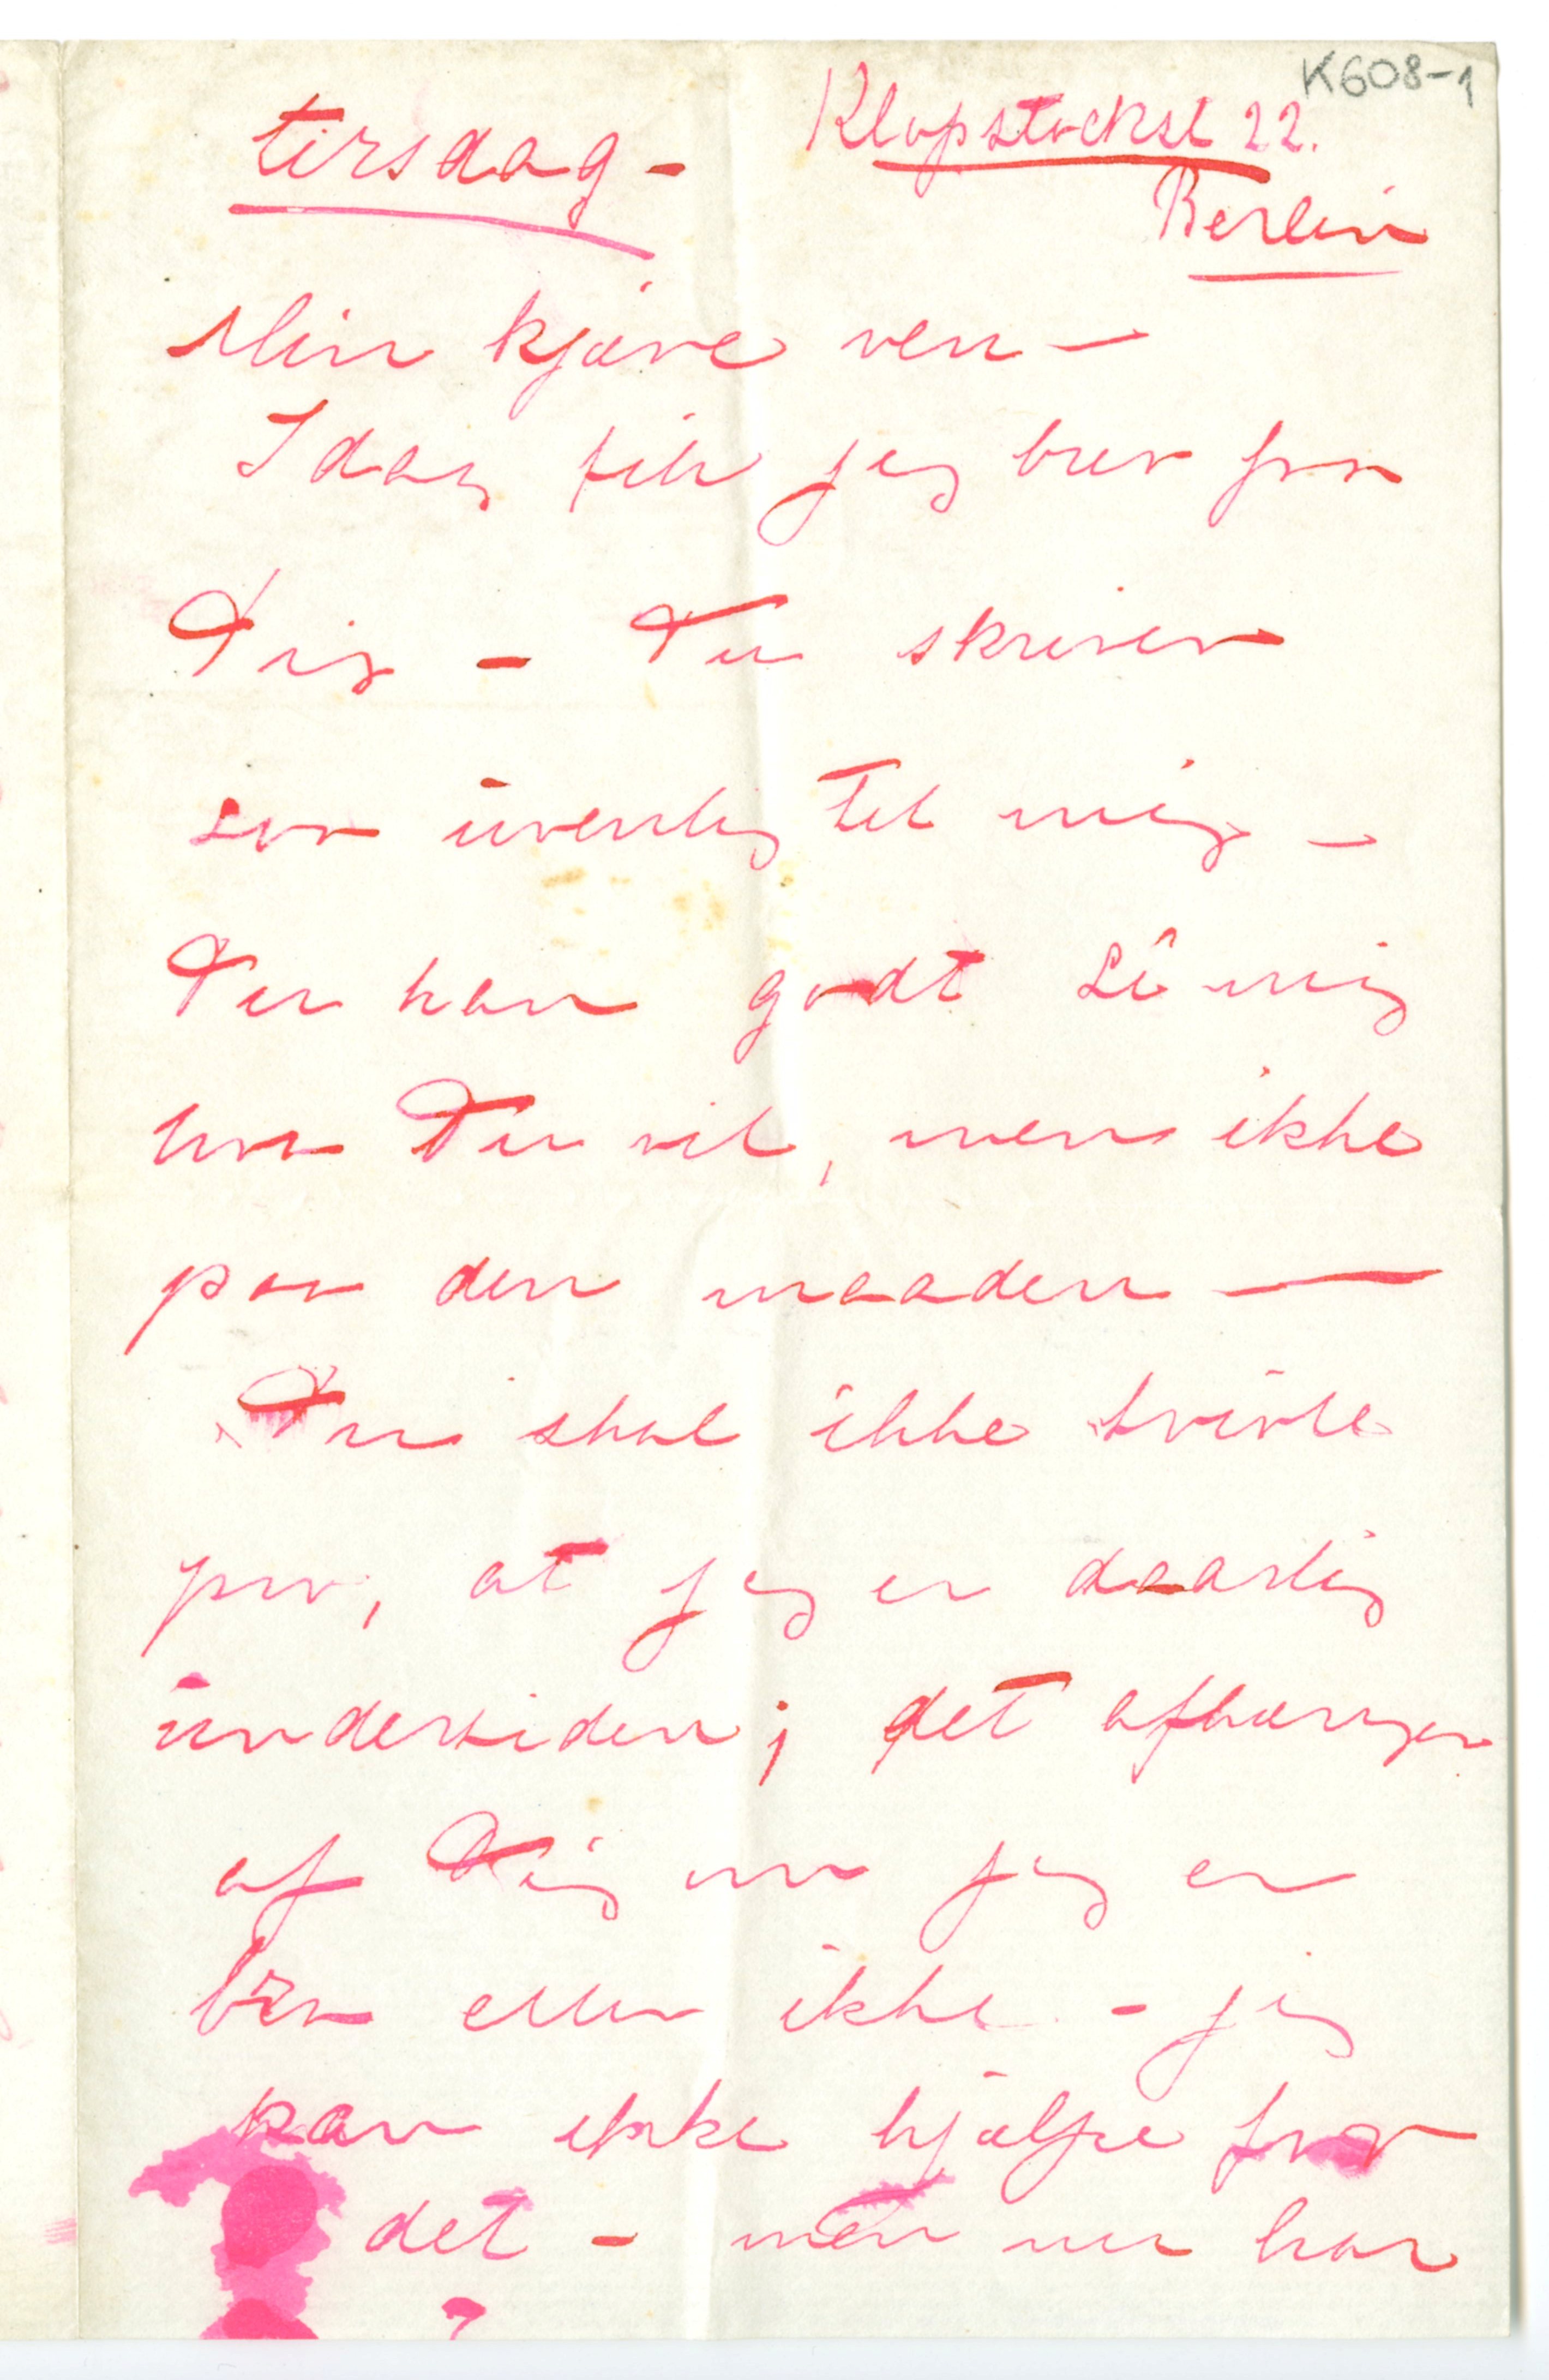 K608-1
tirsdag - Klopstockst 22.
Berlin
Min kjære ven -
Idag fik jeg brev fra
Dig - Du skriver
saa uvenlig til mig -
Du kan godt si mig
hva Du vil, men ikke
paa den maaden -
Du skal ikke tvivle
paa, at jeg er daarlig
undertiden; det afhænger
af Dig om jeg er
bra eller ikke - jeg
kan ikke hjælpe for
det - men nu har